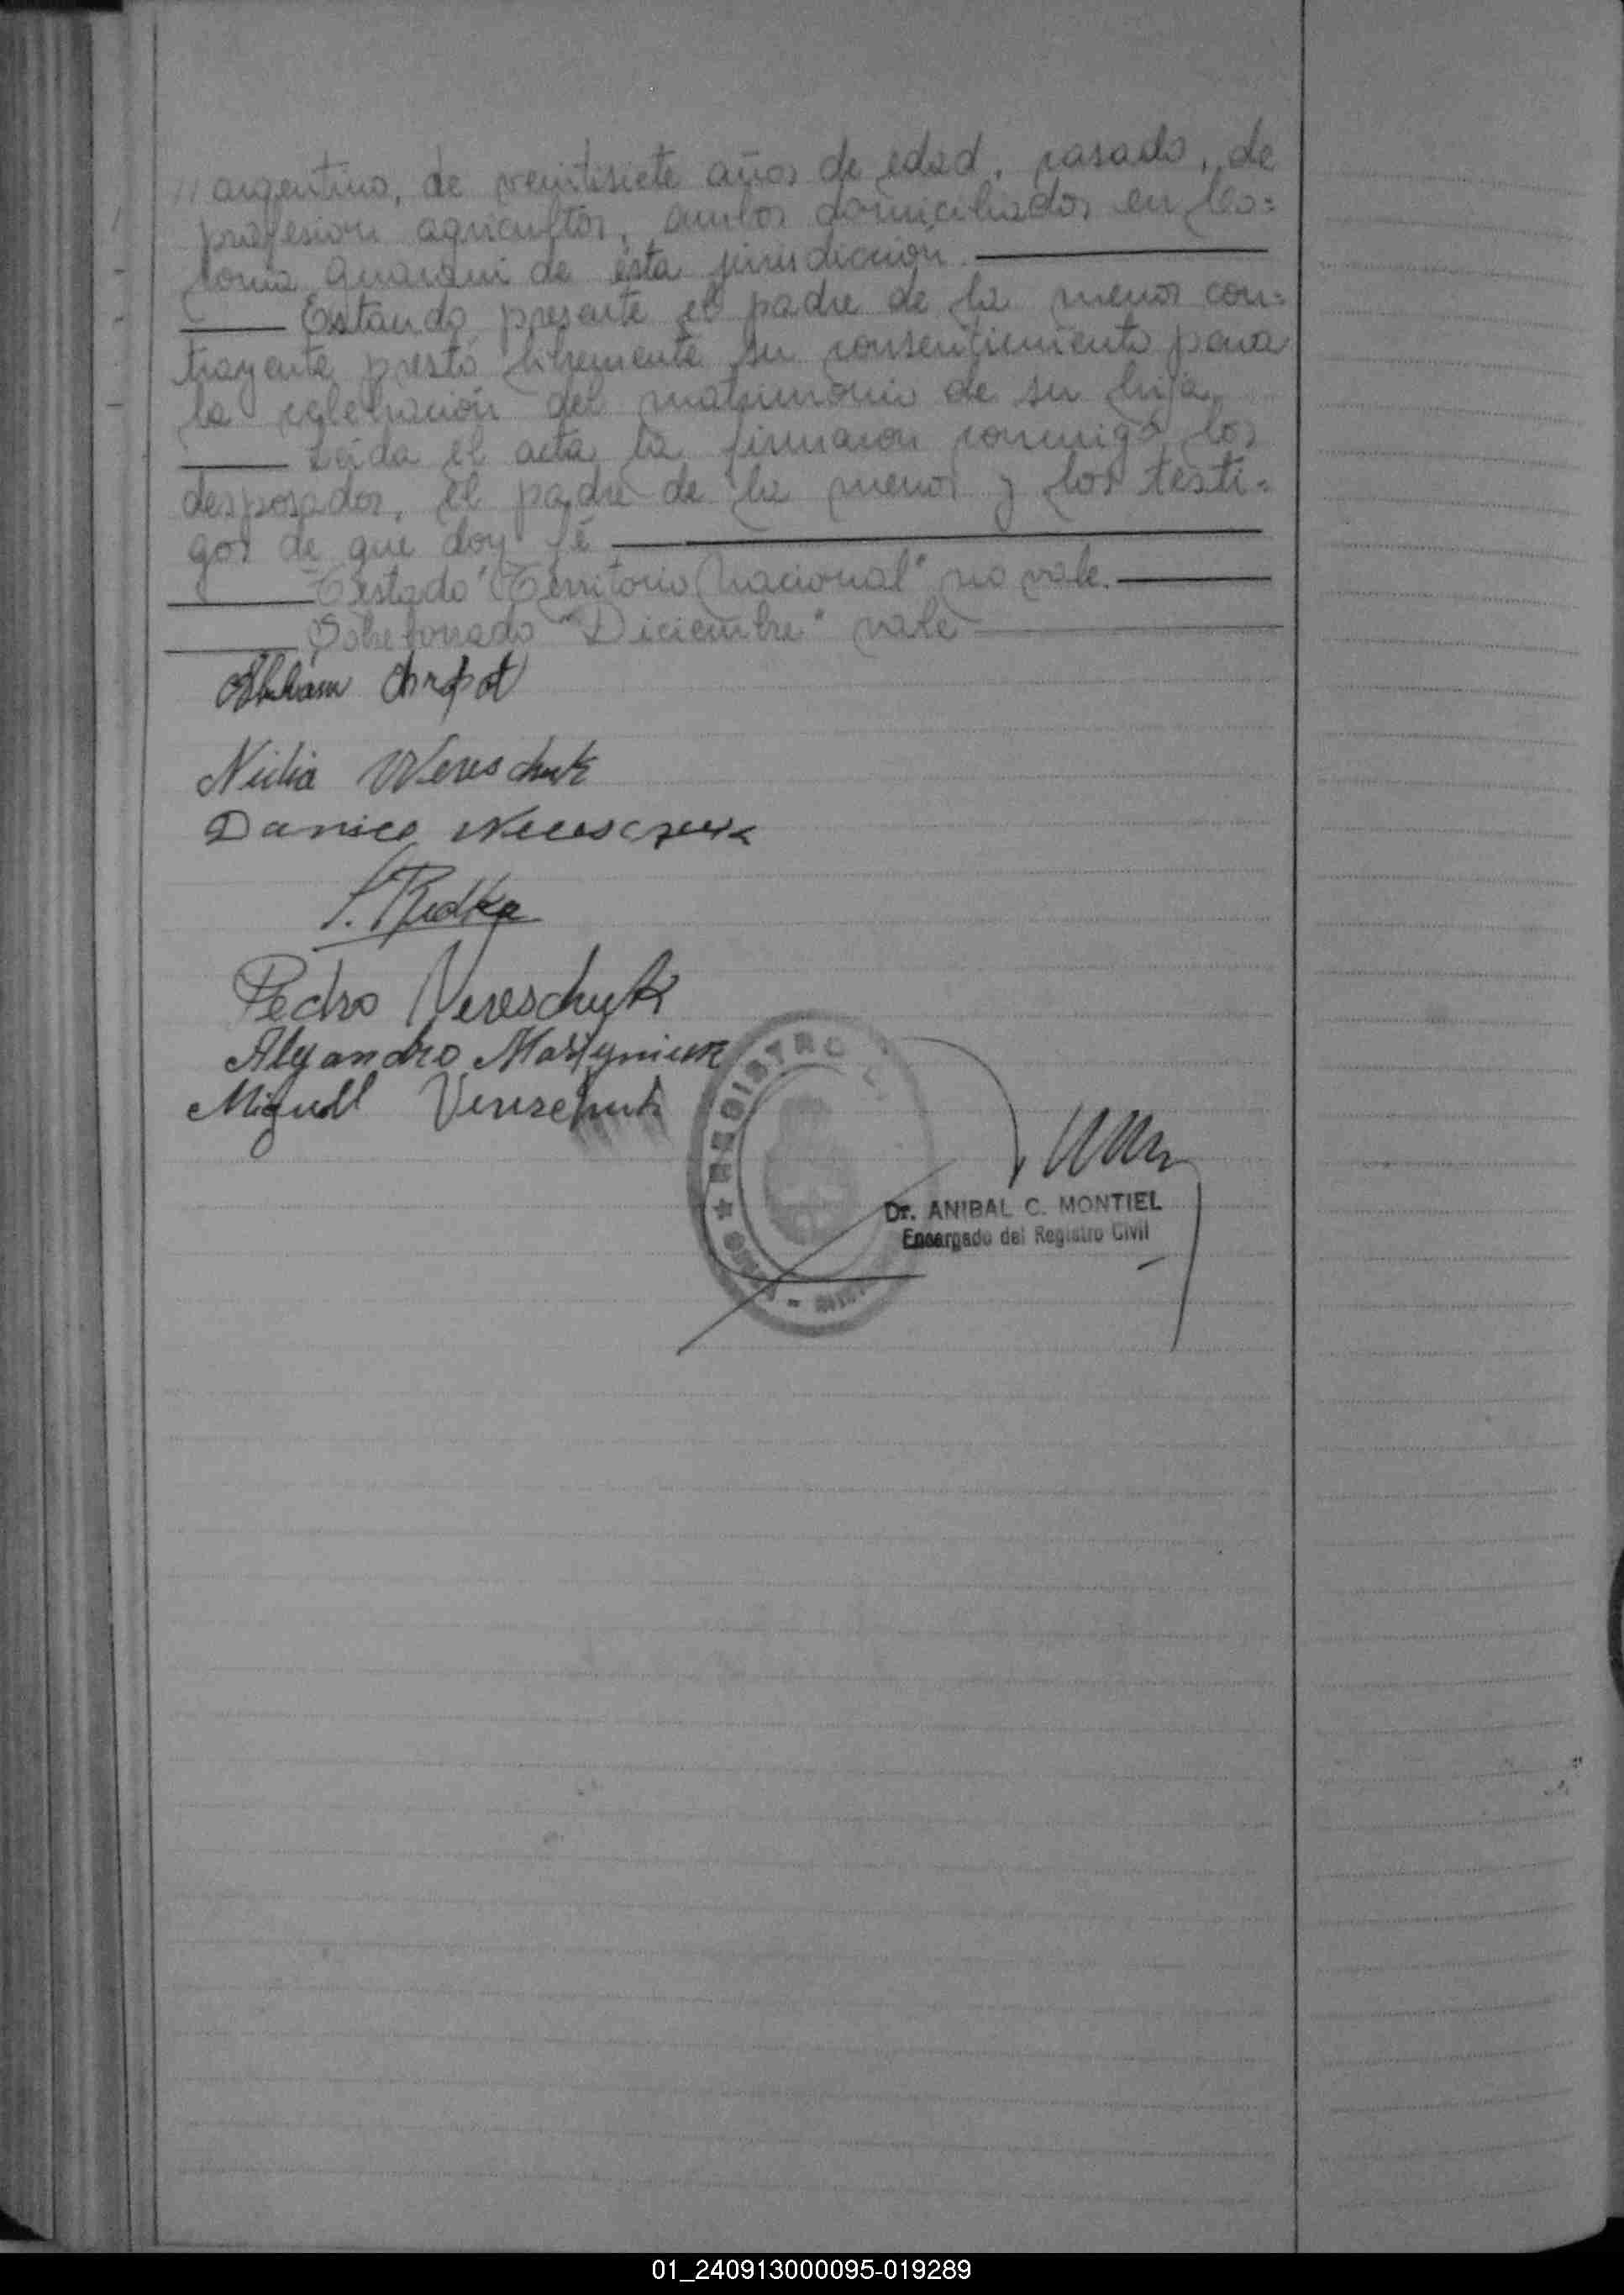 // argentino, de veintisiete años de edad, casado, de
profesión agricultor, ambos domiciliados en Co=
lonia Guaraní de ésta jurisdicción.
Estando presente el padre de la menor con=
trayente prestó libremente su consentimiento para
la celebración del matrimonio de su hija.
Leida el acta la firmaron conmigo los
desposados, el padre de la menor y los testi=
gos de que doy fé
Testado "Territorio Nacional" no vale.
Sobreborrado "Diciembre" vale
Nidia Wereschuk
S. Rudka
Pedro Vereschuk
Alejandro Martyniuk
Miguel Vereschuk
REGISTRO
Dr. ANIBAL C. MONTIEL
Encargado del Registro Civil
01_240913000095-019289